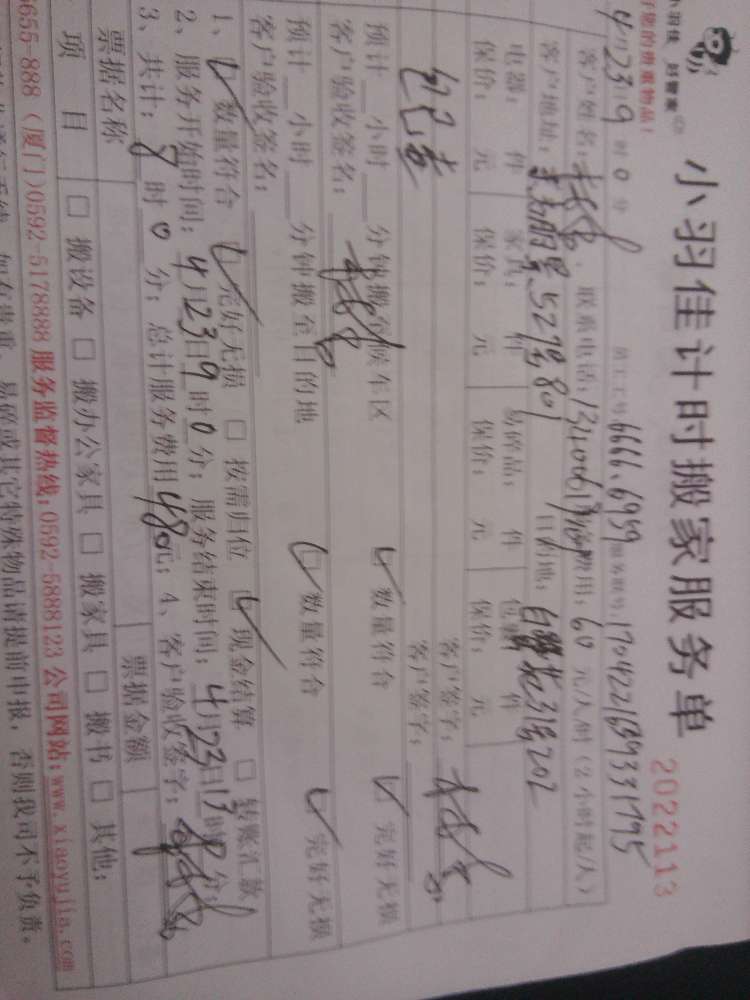 小羽佳 好管家
好您的贵重物品!
小羽佳计时搬家服务单
2022113
4月23日9时0分 员工工号 6666.6959 服务单号:1704221689331795
客户姓名: 联系电话: 费用:60元/人/时(2小时起/人)
客户地址: 52号801 目的地: 31号202
电器: 件 家具: 件 易碎品: 件 件
保价: 元 保价: 元 保价: 元 保价: 元
客户签字:
客户签字:
预计 小时 分钟搬至候车区 数量符合 完好无损
客户验收签名:
预计 小时 分钟搬至目的地 数量符合 完好无损
客户验收签名:
1、 数量符合 完好无损 □ 按需归位 现金结算 □ 转账汇款
2、服务开始时间:4月23日9时0分;服务结束时间:4月23日17时0分;
3、共计:8时0分;总计服务费用480元;4、客户验收签字:
票据名称 票据金额
项目 □ 搬设备 □ 搬办公家具 □ 搬家具 □ 搬书 □ 其他:
9655-888 (厦门)0592-5178888 服务监督热线:0592-5888123 公司网站:www.xiaoyujia.com
易碎或其它特殊物品请提前申报,否则我司不予负责。